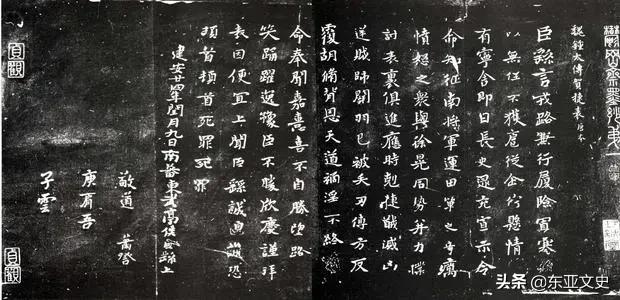 鬱岡齋墨妙第一
魏鍾太傅賀捷表 唐本
臣繇言戎路兼行履險冒寒臣
以無任不獲扈從企佇懸情無
有寧舍即日長史逮充宣示令
命知征南將軍運田單之奇厲
憤怒之衆與徐晃同勢并力撲
討表裏俱進應時剋捷馘滅凶
逆賊帥關羽已被矢刃傅方反
覆胡脩背恩天道禍淫不終厥
命奉聞嘉憙喜不自勝望路載
笑踊躍逸豫臣不勝欣慶謹拜
表因便宜上聞臣繇誠惶誠恐
頓首頓首死罪死罪
建安廿四年閏月九日南蕃東武亭侯臣繇上
庾肩吾
子雲
貞觀
貞觀
头条 @东亚文史